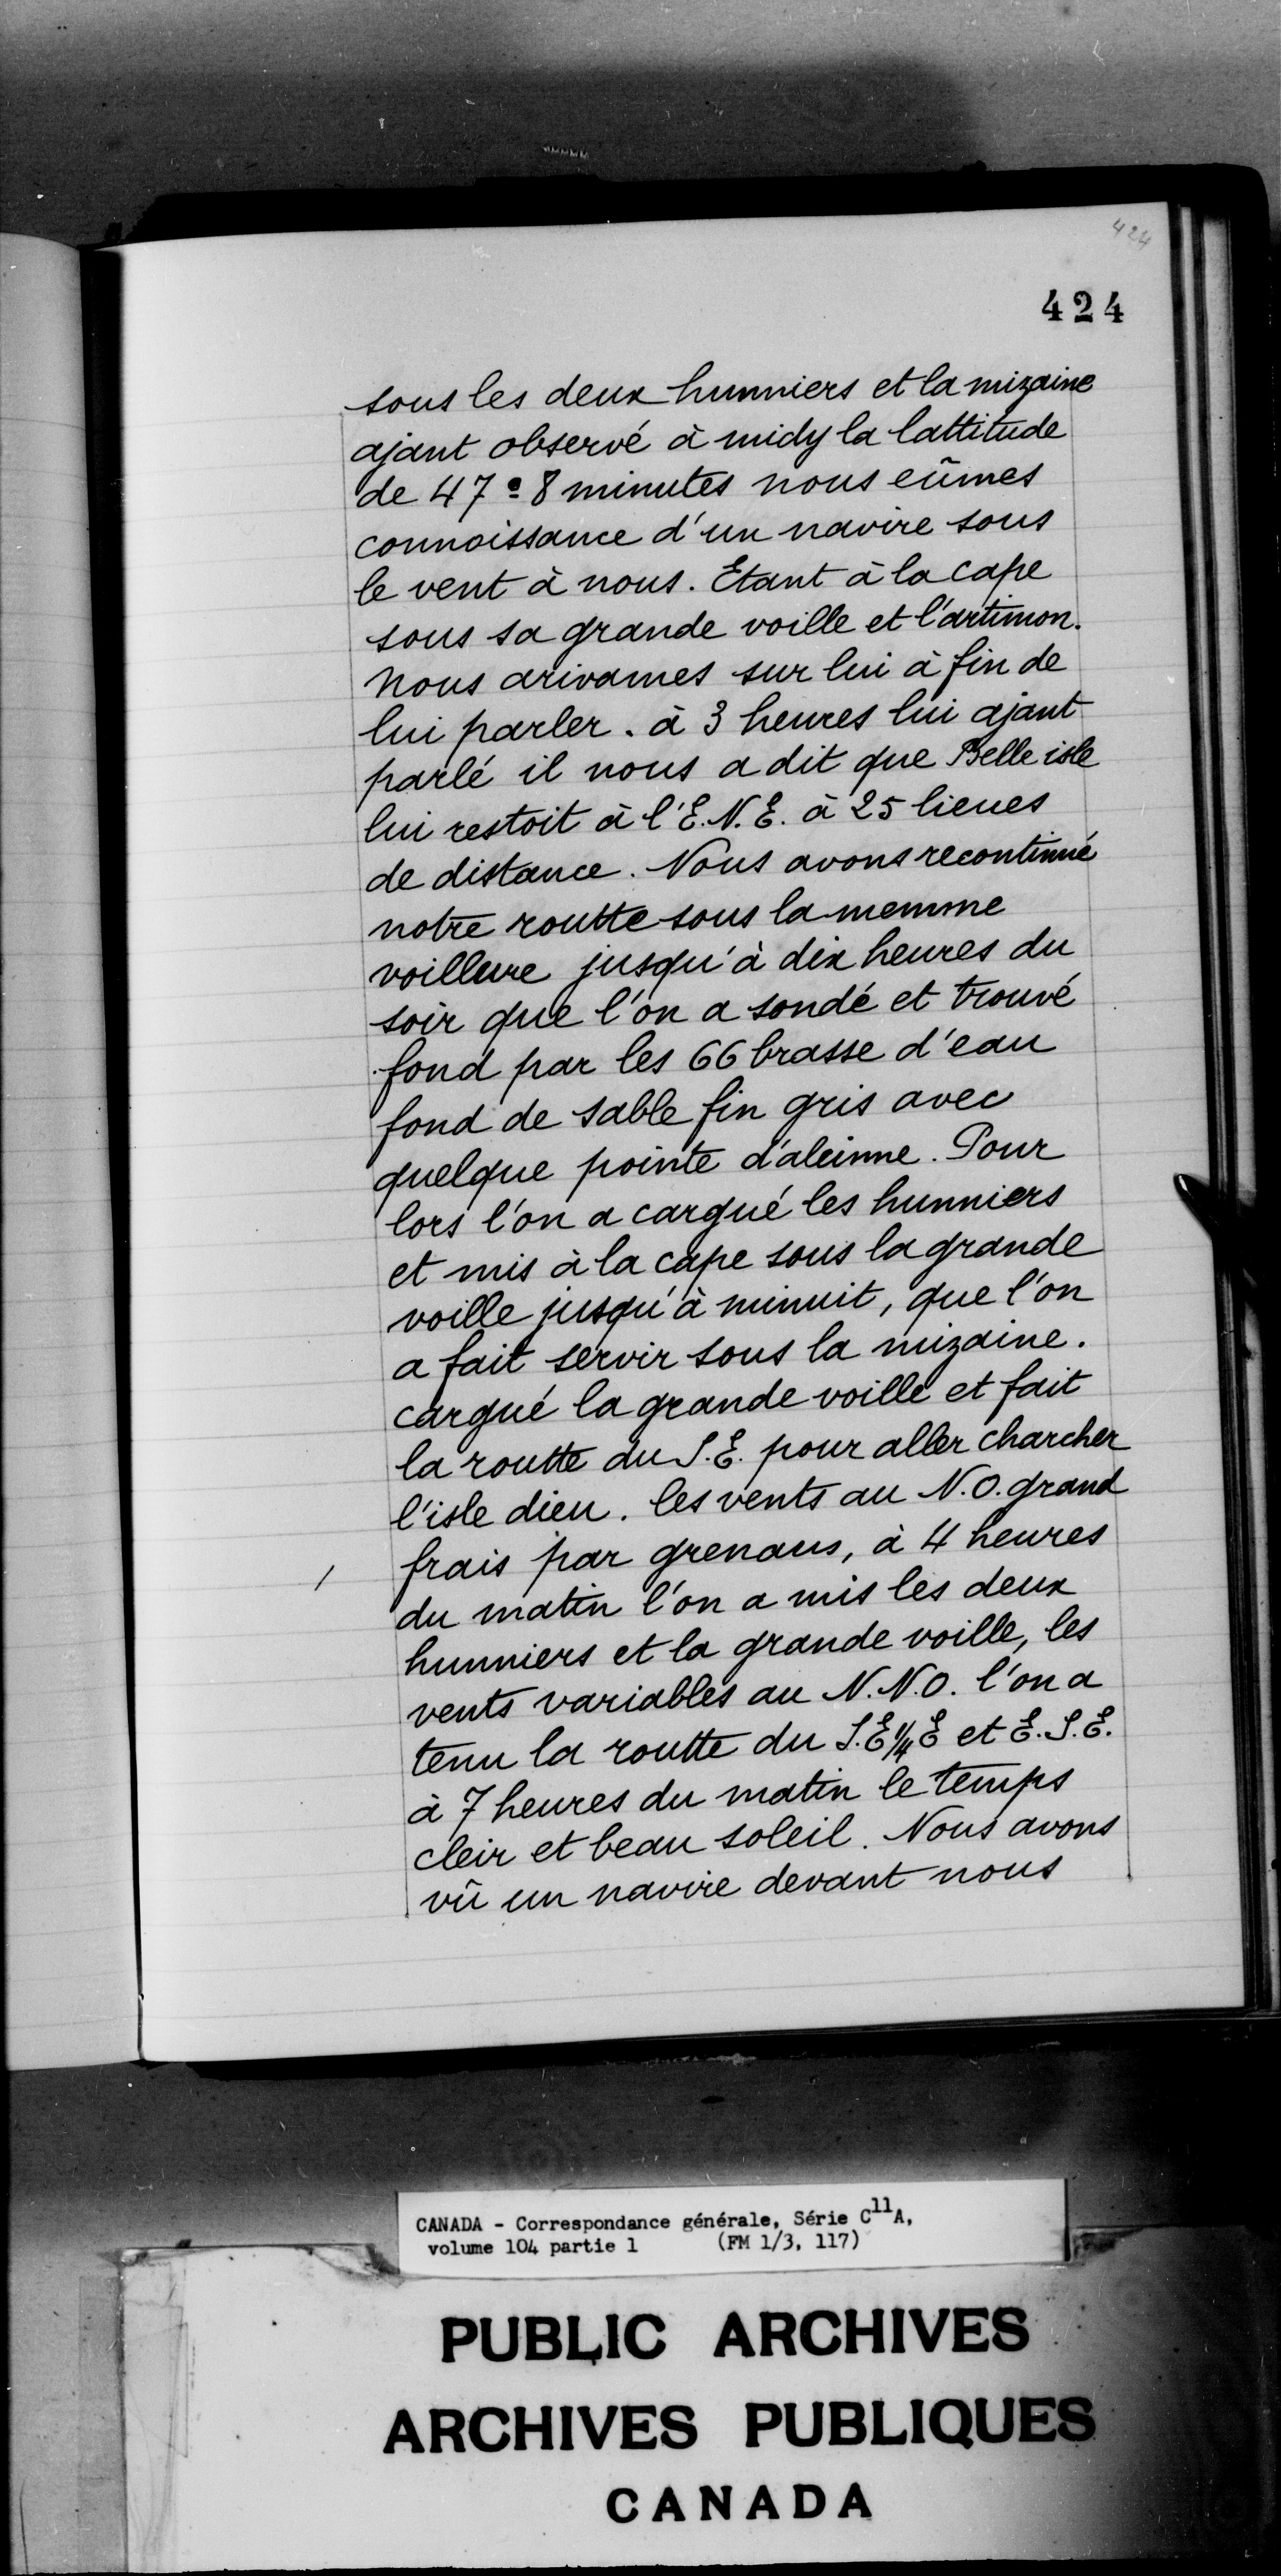 424
424
sous les deux hunniers et la mizaine
ajant observé à midy la lattitude
de 47° 8 minutes nous eûmes
connoissance d'un navire sous
le vent à nous. Etant à la cape
sous sa grande voille et l'artimon.
Nous arivames sur lui à fin de
lui parler. à 3 heures lui ajant
parlé il nous a dit que Belle isle
lui restoit à l'E.N.E. à 25 lieues
de distance. Nous avons recontinué
notre routte sous la memme
voillure jusqu'à dix heures du
soir que l'on a sondé et trouvé
fond par les 66 brasse d'eau
fond de sable fin gris avec
quelque pointe d'aleinne. Pour
lors l'on a cargué les hunniers
et mis à la cape sous la grande
voille jusqu'à minuit, que l'on
a fait servir sous la mizaine.
cargué la grande voille et fait
la routte du S.E. pour aller charcher
l'isle dieu. les vents au N.O. grand
/ frais par grenaus, à 4 heures
du matin l'on a mis les deux
hunniers et la grande voille, les
vents variables au N.N.O. l'on a
tenu la routte du S.E 1/4 E et E.S.E.
à 7 heures du matin le temps
cleir et beau soleil. Nous avons
vû un navire devant nous
CANADA - Correspondance générale, Série C11A,
volume 104 partie 1 (FM 1/3, 117)
PUBLIC ARCHIVES
ARCHIVES PUBLIQUES
CANADA